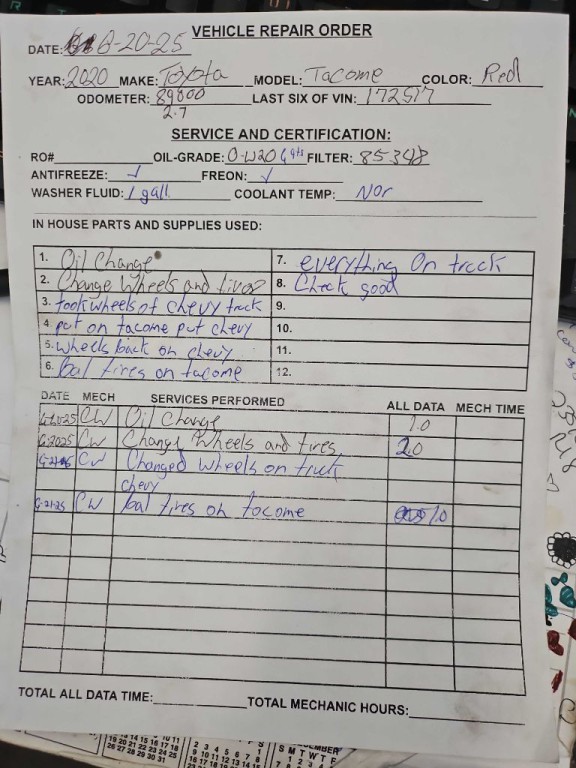 VEHICLE REPAIR ORDER
DATE: 6-20-25
YEAR: 2020 MAKE: Toyota MODEL: Tacome COLOR: Red
ODOMETER: 89000 LAST SIX OF VIN: 172517
2.7
SERVICE AND CERTIFICATION:
RO# OIL-GRADE: 0-W20 6 qts FILTER: 85348
ANTIFREEZE: ✓ FREON: ✓
WASHER FLUID: 1 gall COOLANT TEMP: Nor
IN HOUSE PARTS AND SUPPLIES USED:
1. Oil Change 7. everything On truck
2. Change Wheels and tires 8. Check good
3. took wheels of chevy truck 9.
4. put on tacome put chevy 10.
5. wheels back on chevy 11.
6. bal tires on tacome 12.
DATE MECH SERVICES PERFORMED ALL DATA MECH TIME
6-20-25 CW Oil Change 1.0
6-20-25 CW Change Wheels and tires 2.0
6-21-25 CW Changed wheels on truck
chevy
6-21-25 CW bal tires on tacome 1.0
TOTAL ALL DATA TIME: TOTAL MECHANIC HOURS: